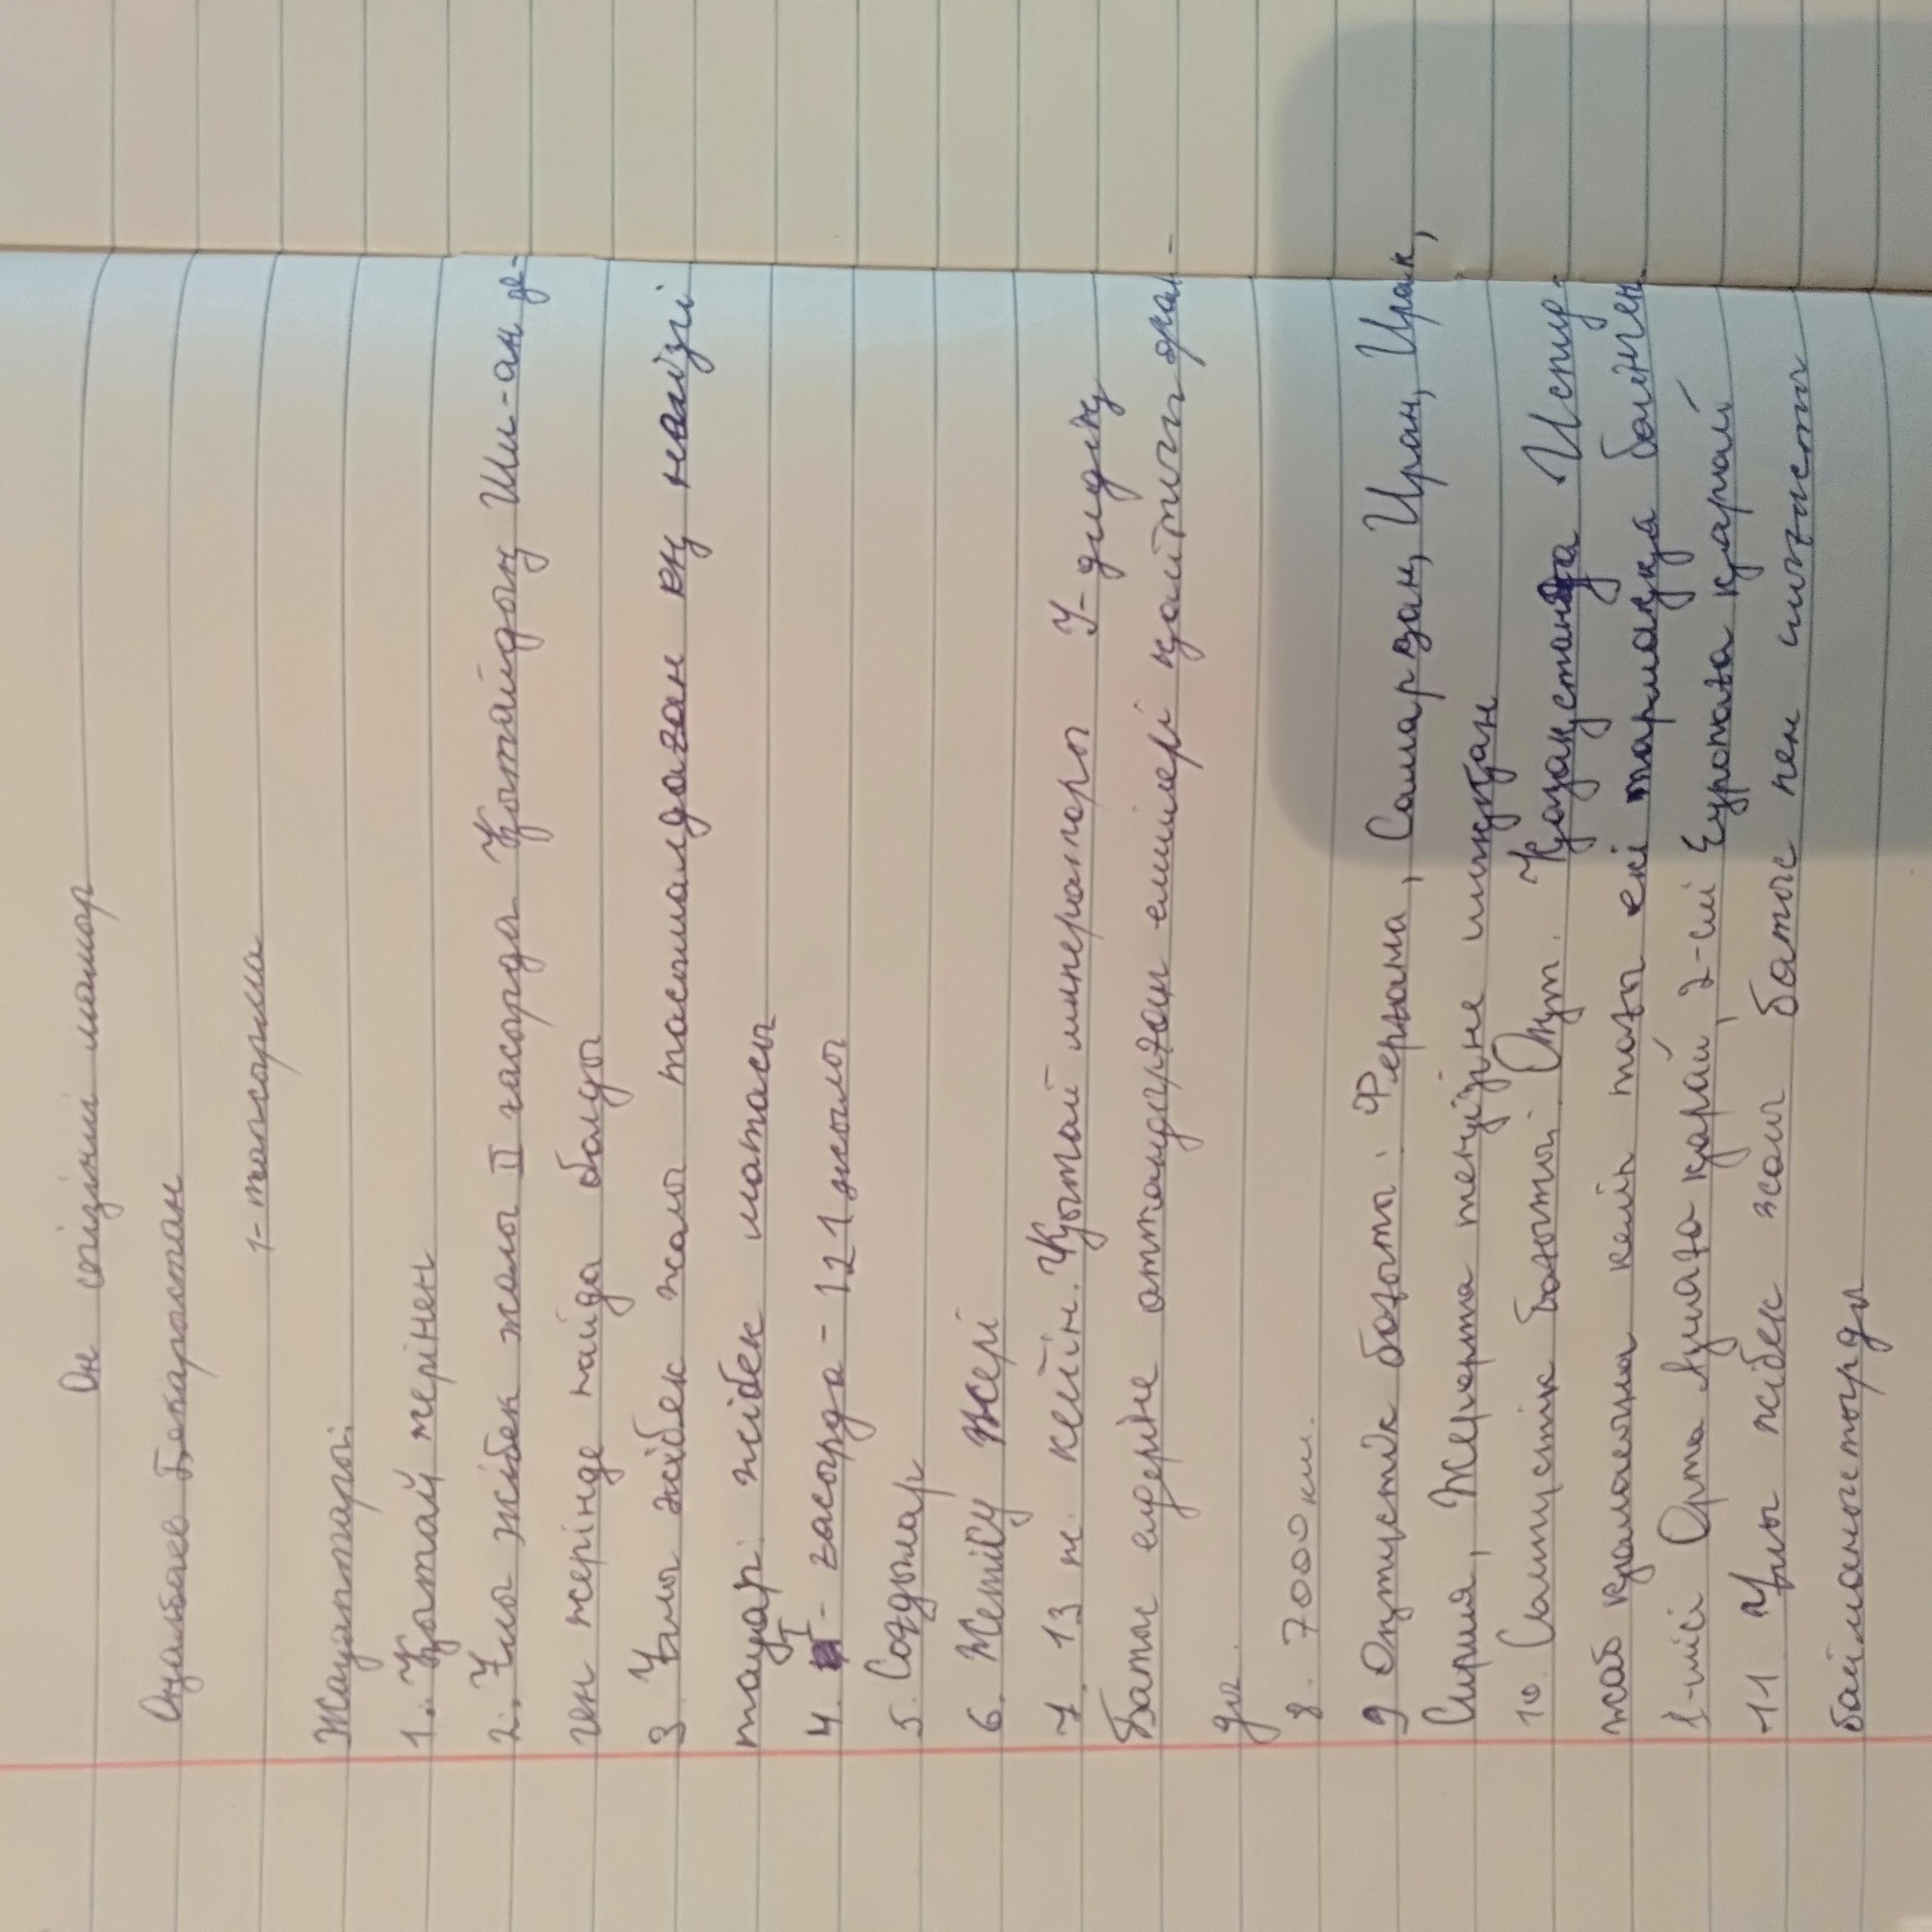 Он сегізінші мамыр
Оңалбаев Бекарыстан
1-тапсырма
Жауаптары:
1. Қытай жерінен
2. Ұлы жібек жолы II ғасырда Қытайдың Ши-ан де-
ген жерінде пайда болды
3. Ұлы жібек жолы тасымалдаған ең негізгі
тауар: жібек матасы
4. I - ғасырда - 121 жылы
5. Соғдылар
6. Жетісу жері
7. 13 ж. кейін. Қытай императоры У-дидің
Батыс елдеріне аттандырған елшілері қайтып орал-
ды.
8. 7000 км.
9 Оңтүстік бағыты: Ферғана, Самарқан, Иран, Ирак,
Сирия, Жерорта теңізіне шыққан
10. Солтүстік бағыты: Оңт. Қазақстанда Испид-
жаб қаласына келіп тағы екі тармаққа бөлінген
1-шісі Орта Азияға қарай, 2-ші Еуропаға қарай
11 Ұлы жібек жолы батыс пен шығысты
байланыстырды